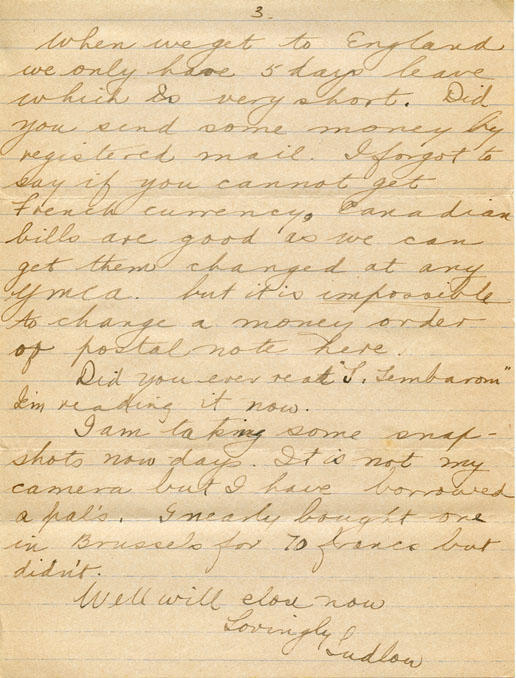 3.
When we get to England
we only have 5 days leave
which is very short. Did
you send some money by
registered mail. I forgot to
say if you cannot get
French currency, Canadian
bills are good as we can
get them changed at any
YMCA. but it is impossible
to change a money order
or postal note here.
Did you ever read "T. Tembarom"
I'm reading it now.
I am taking some snap-
shots now days. It is not my
camera but I have borrowed
a pal's. I nearly bought one
in Brussels for 70 francs but
didn't.
Well will close now
Lovingly
Ludlow